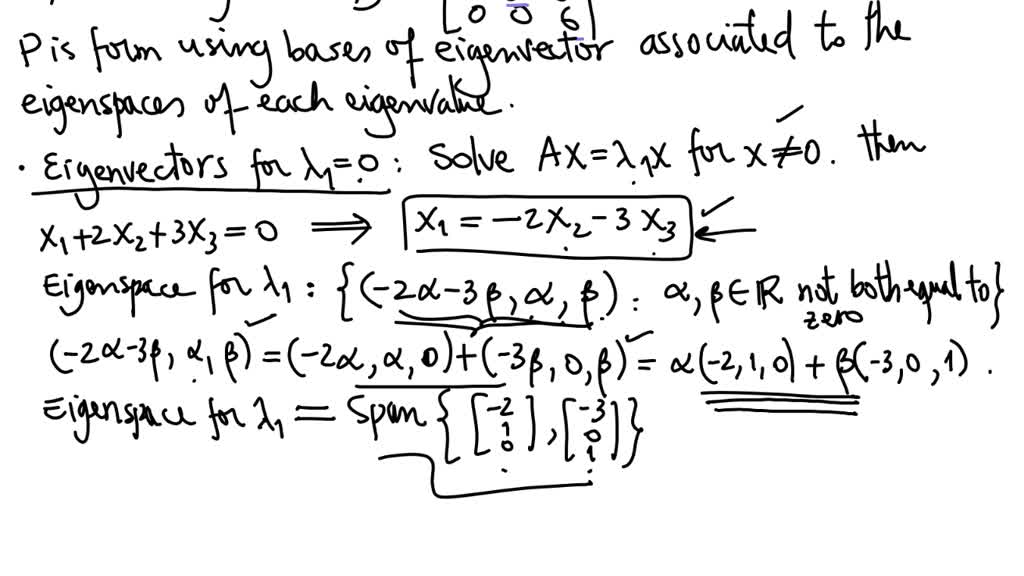 [0 0 6]
P is form using bases of eigenvector associated to the
eigenspaces of each eigenvalue.
• Eigenvectors for λ₁=0: Solve AX=λ₁X for X≠0. then
X₁+2X₂+3X₃=0 ⟹ X₁=-2X₂-3X₃
Eigenspace for λ₁: {(-2α-3β, α, β): α, β∈ℝ not both equal to}
zero
(-2α-3β, α, β)=(-2α, α, 0)+(-3β, 0, β)=α(-2,1,0)+β(-3,0,1).
Eigenspace for λ₁ = Span {[-2 1 0], [-3 0 1]}